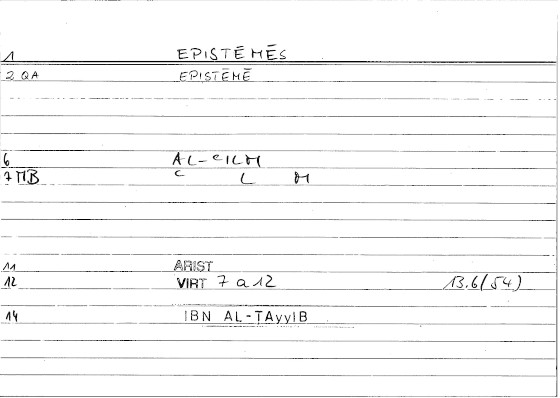 1 EPISTĒMĒS
2 QA EPISTĒMĒ
6 AL-ʿILM
7 MB ʿ L M
11 ARIST
12 VIRT 7 a 12 13.6(54)
14 IBN AL-ṬAyyIB